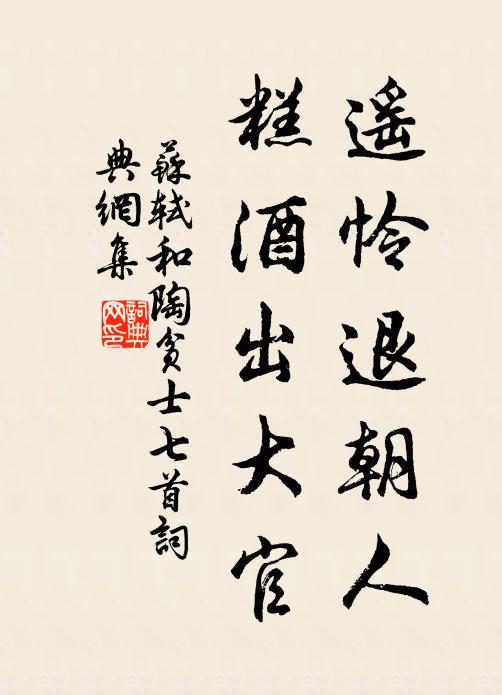 遥怜退朝人
糕酒出大官
蘇軾和陶貧士七首詞
典網集
詞典网印